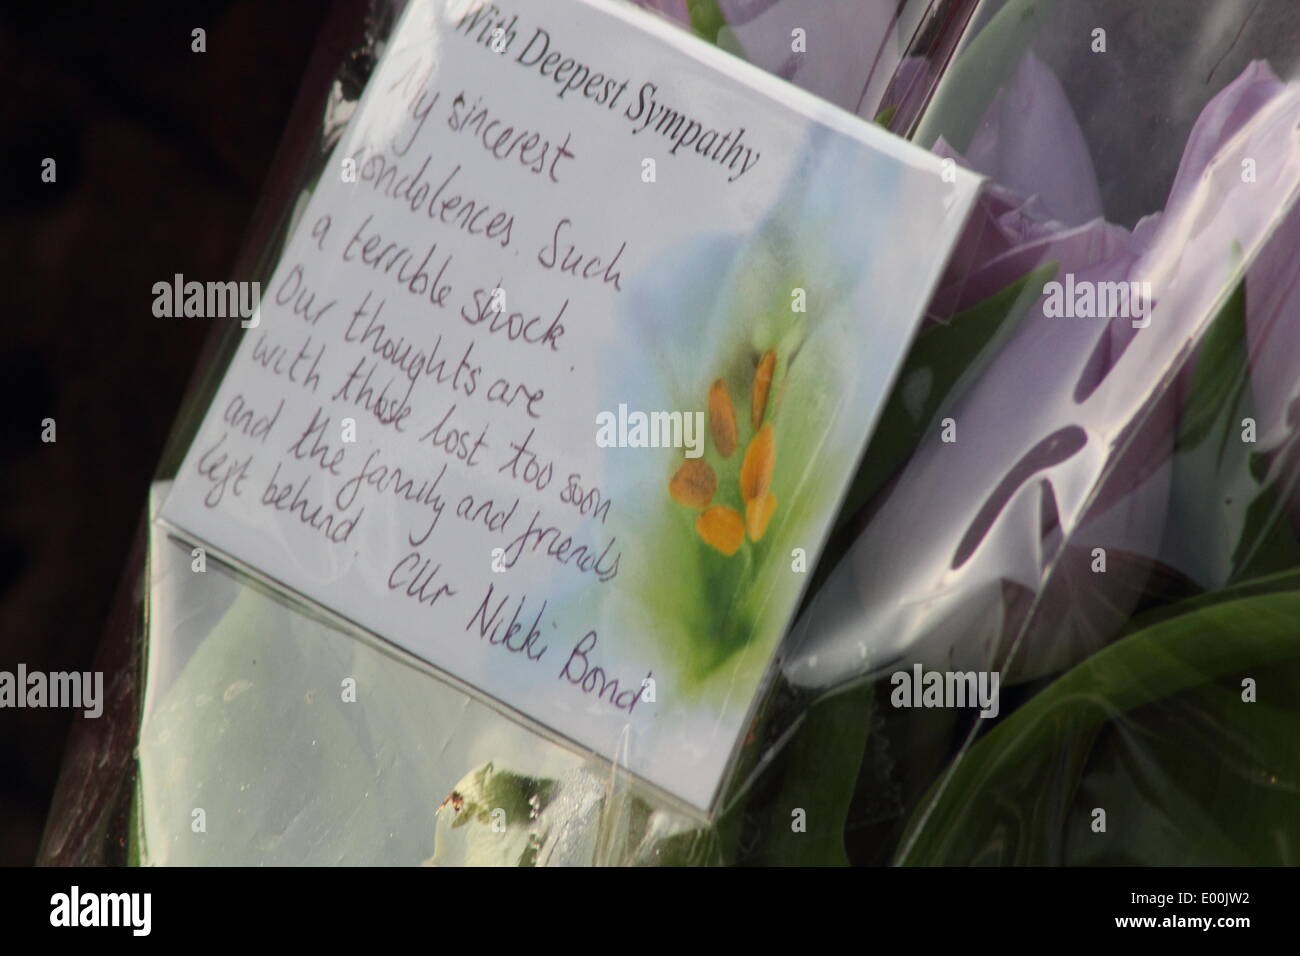 With Deepest Sympathy
My sincerest
condolences. Such
a terrible shock.
Our thoughts are
with those lost too soon
and the family and friends
left behind.
Cllr Nikki Bond
alamy
alamy
alamy
alamy
alamy
alamy stock photo
Image ID: E00JW2
www.alamy.com